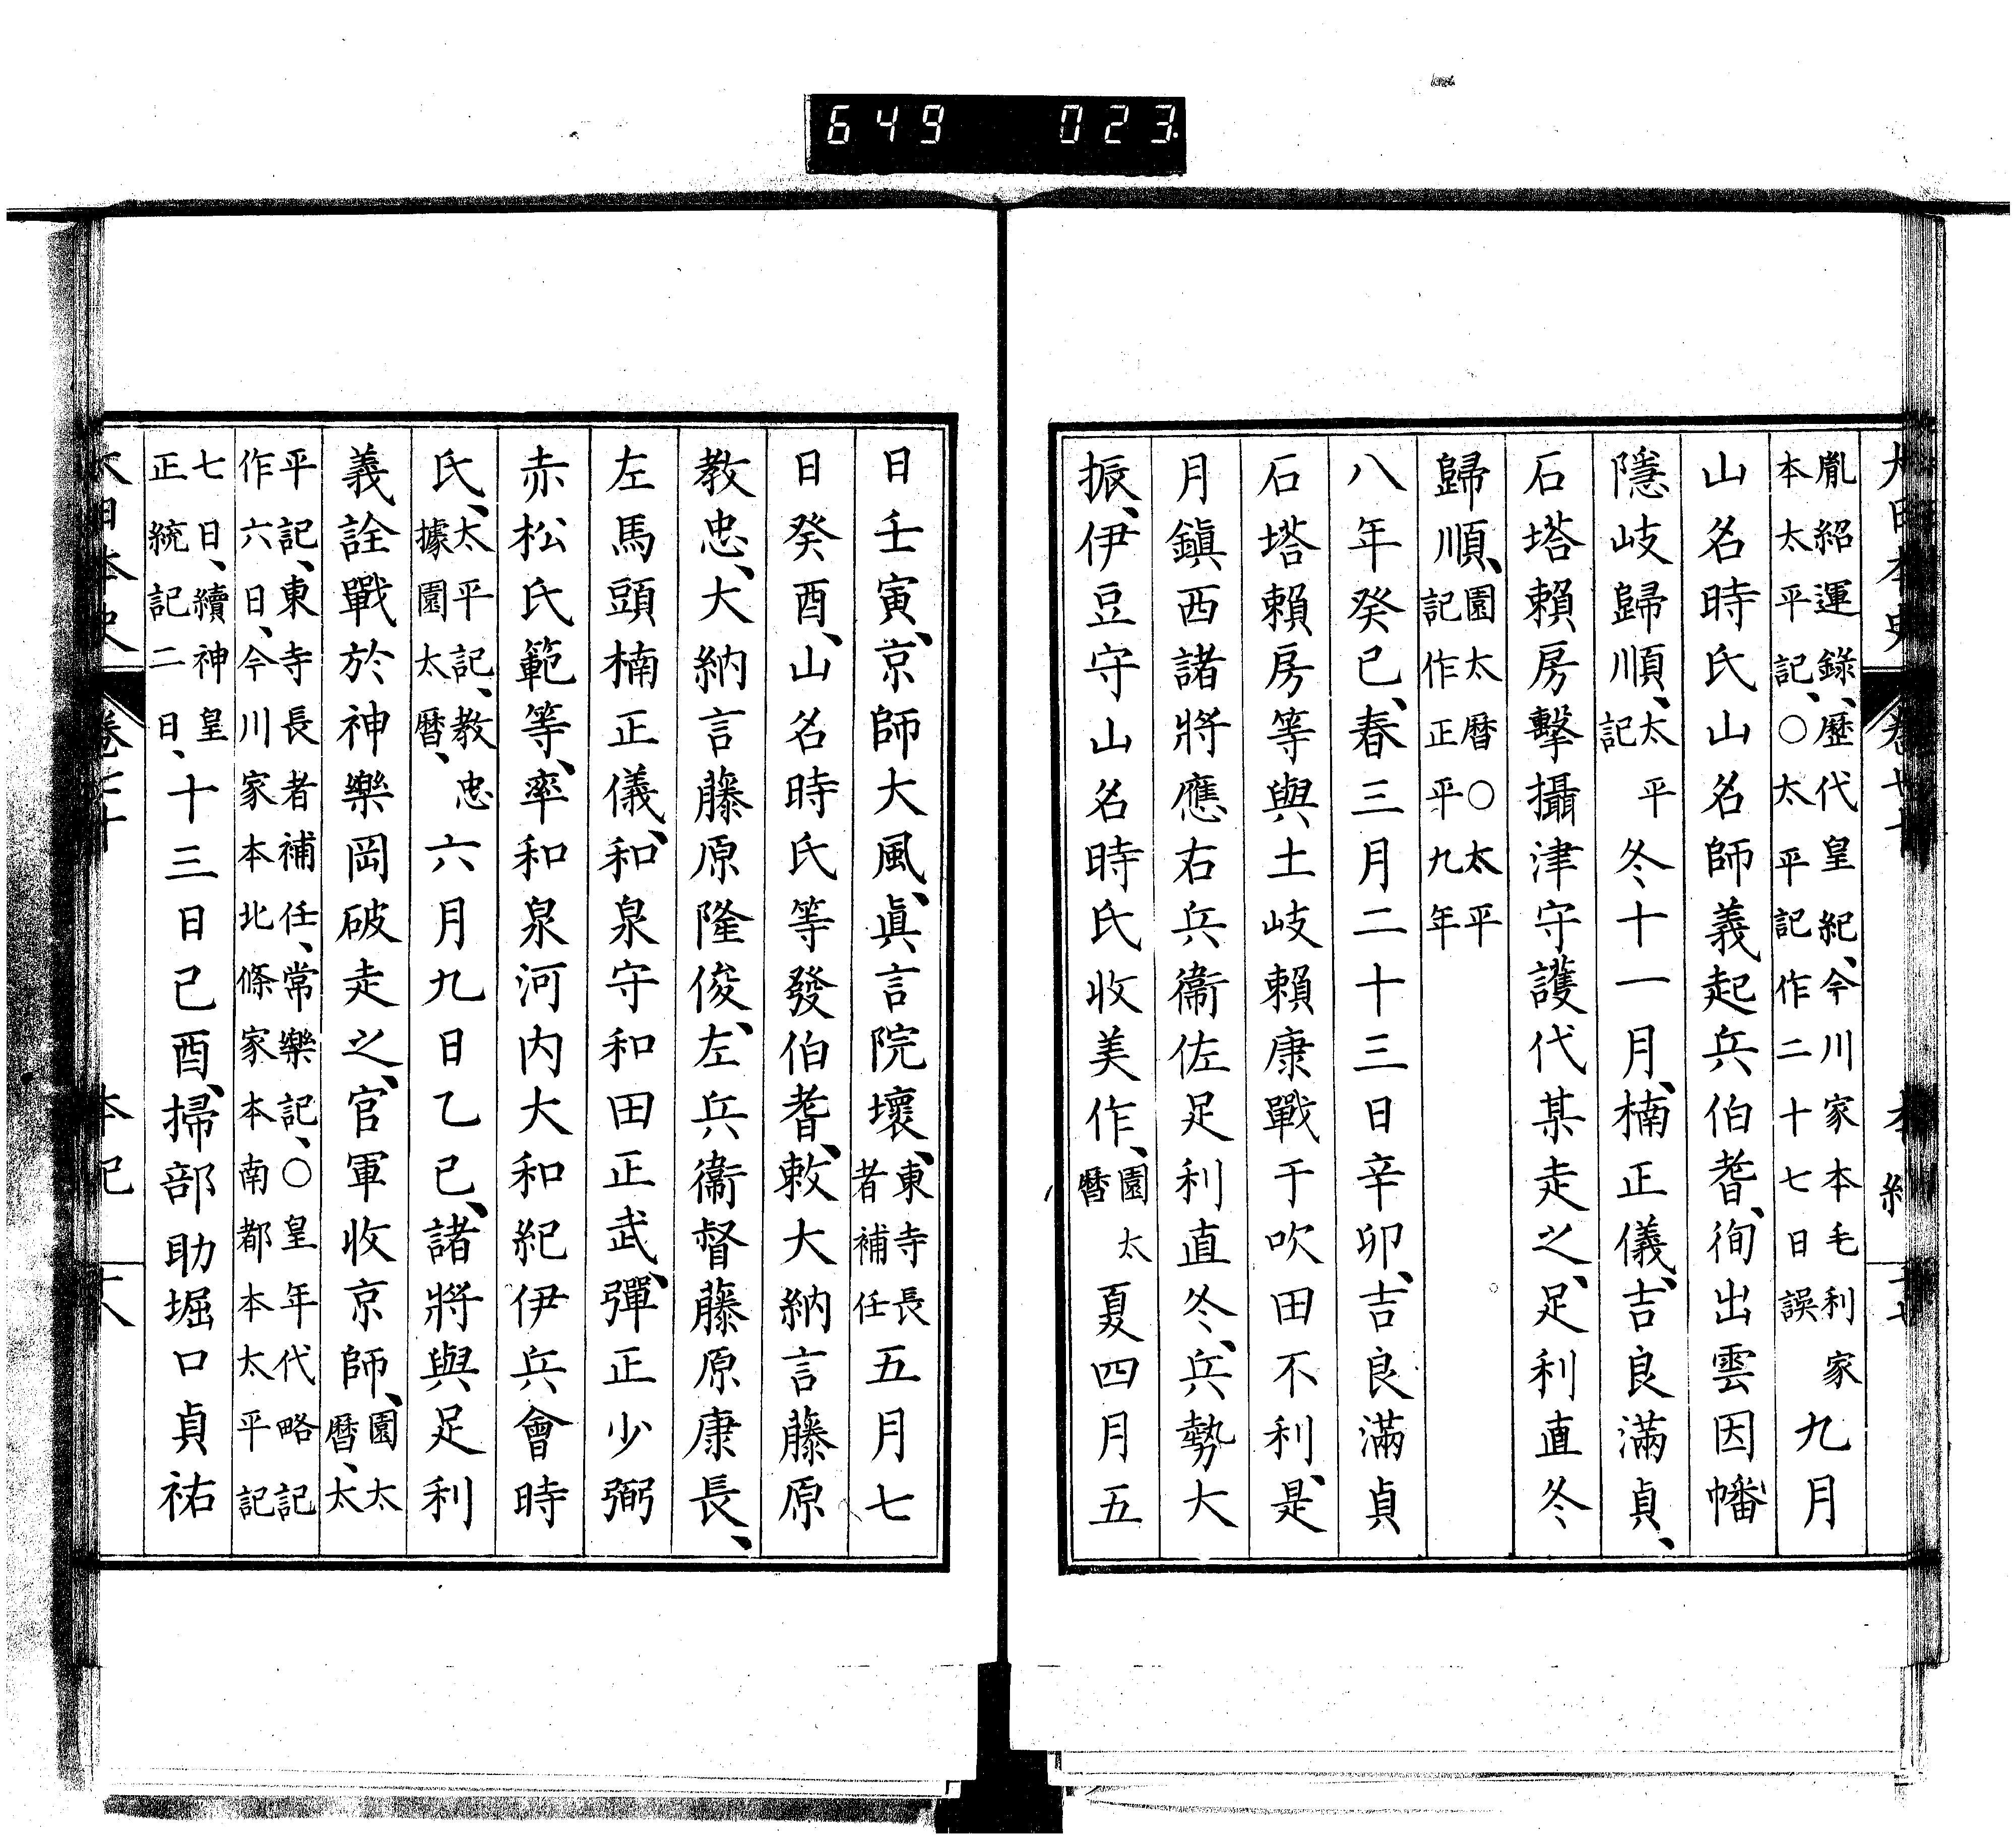 649 023.
大日本史 卷七十 本紀
胤紹運錄、歷代皇紀、今川家本毛利家
本太平記、○太平記作二十七日誤 九月
山名時氏山名師義起兵伯耆、徇出雲因幡
隱岐歸順、太平記 冬十一月、楠正儀、吉良滿貞、
石塔賴房擊攝津守護代某走之、足利直冬
歸順、園太曆○太平記作正平九年
八年癸巳、春三月二十三日辛卯、吉良滿貞
石塔賴房等與土岐賴康戰于吹田不利、是
月鎭西諸將應右兵衞佐足利直冬、兵勢大
振、伊豆守山名時氏收美作、園太曆 夏四月五
日壬寅、京師大風、眞言院壞、東寺長者補任 五月七
日癸酉、山名時氏等發伯耆、敕大納言藤原
教忠、大納言藤原隆俊、左兵衞督藤原康長、
左馬頭楠正儀、和泉守和田正武、彈正少弼
赤松氏範等、率和泉河內大和紀伊兵會時
氏、太平記、教忠據園太曆、 六月九日乙巳、諸將與足利
義詮戰於神樂岡破走之、官軍收京師、園太曆、太
平記、東寺長者補任、常樂記、○皇年代略記
作六日、今川家本北條家本南都本太平記
七日、續神皇正統記二日、 十三日己酉、掃部助堀口貞祐
大日本史 卷七十 本紀 十八